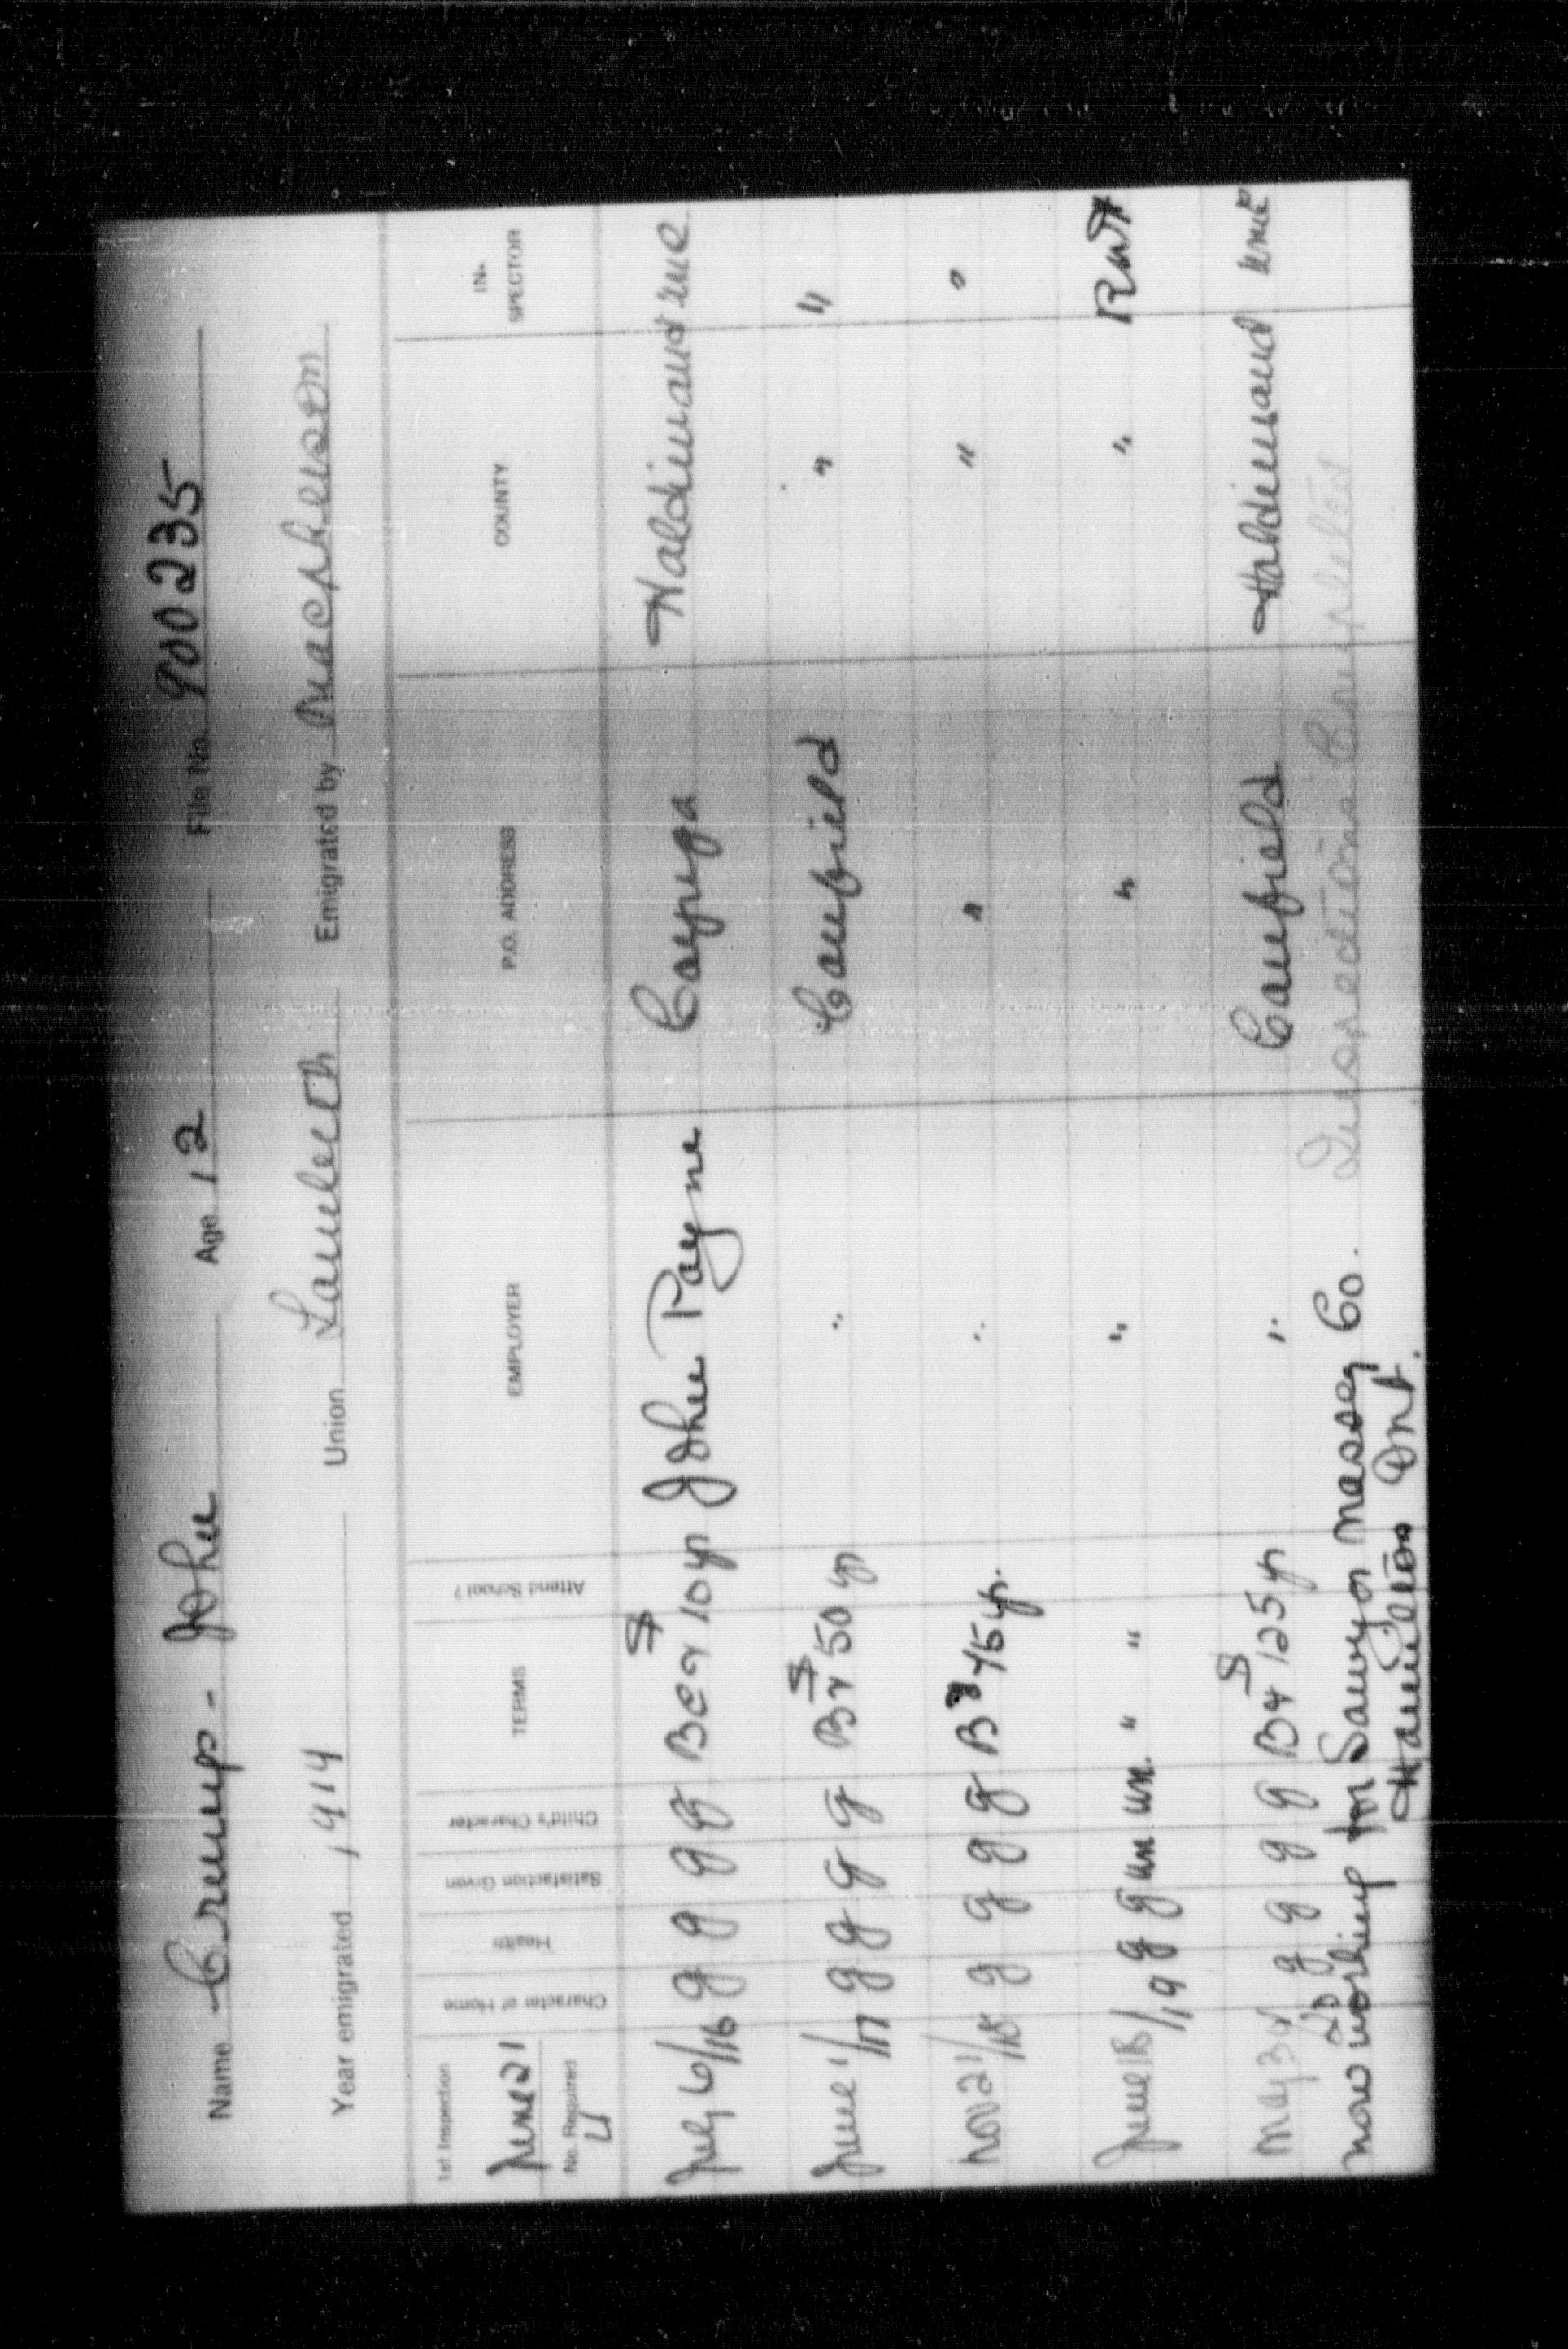 Name Crump - John Age 12 File No. 900235
Year emigrated 1914 Union Lambeth Emigrated by Macpherson
1st Inspection June 21 No. Required 4 Character of Home Health Satisfaction Given Child's Character TERMS Attend School? EMPLOYER P.O. ADDRESS COUNTY IN-SPECTOR
July 6/16 g g g g BC & $10 yr John Payne Cayuga Haldimand
June 1/17 g g g g B & $50 yr " Canfield " "
Nov 21/18 g g g g B & 75 yr. " " " "
June 18/19 g g un un. " " " " "
May 3 g g g g B & $125 yr " Canfield Haldimand
now working for Sawyer Massey Co. Inspections Completed
Hamilton Ont.